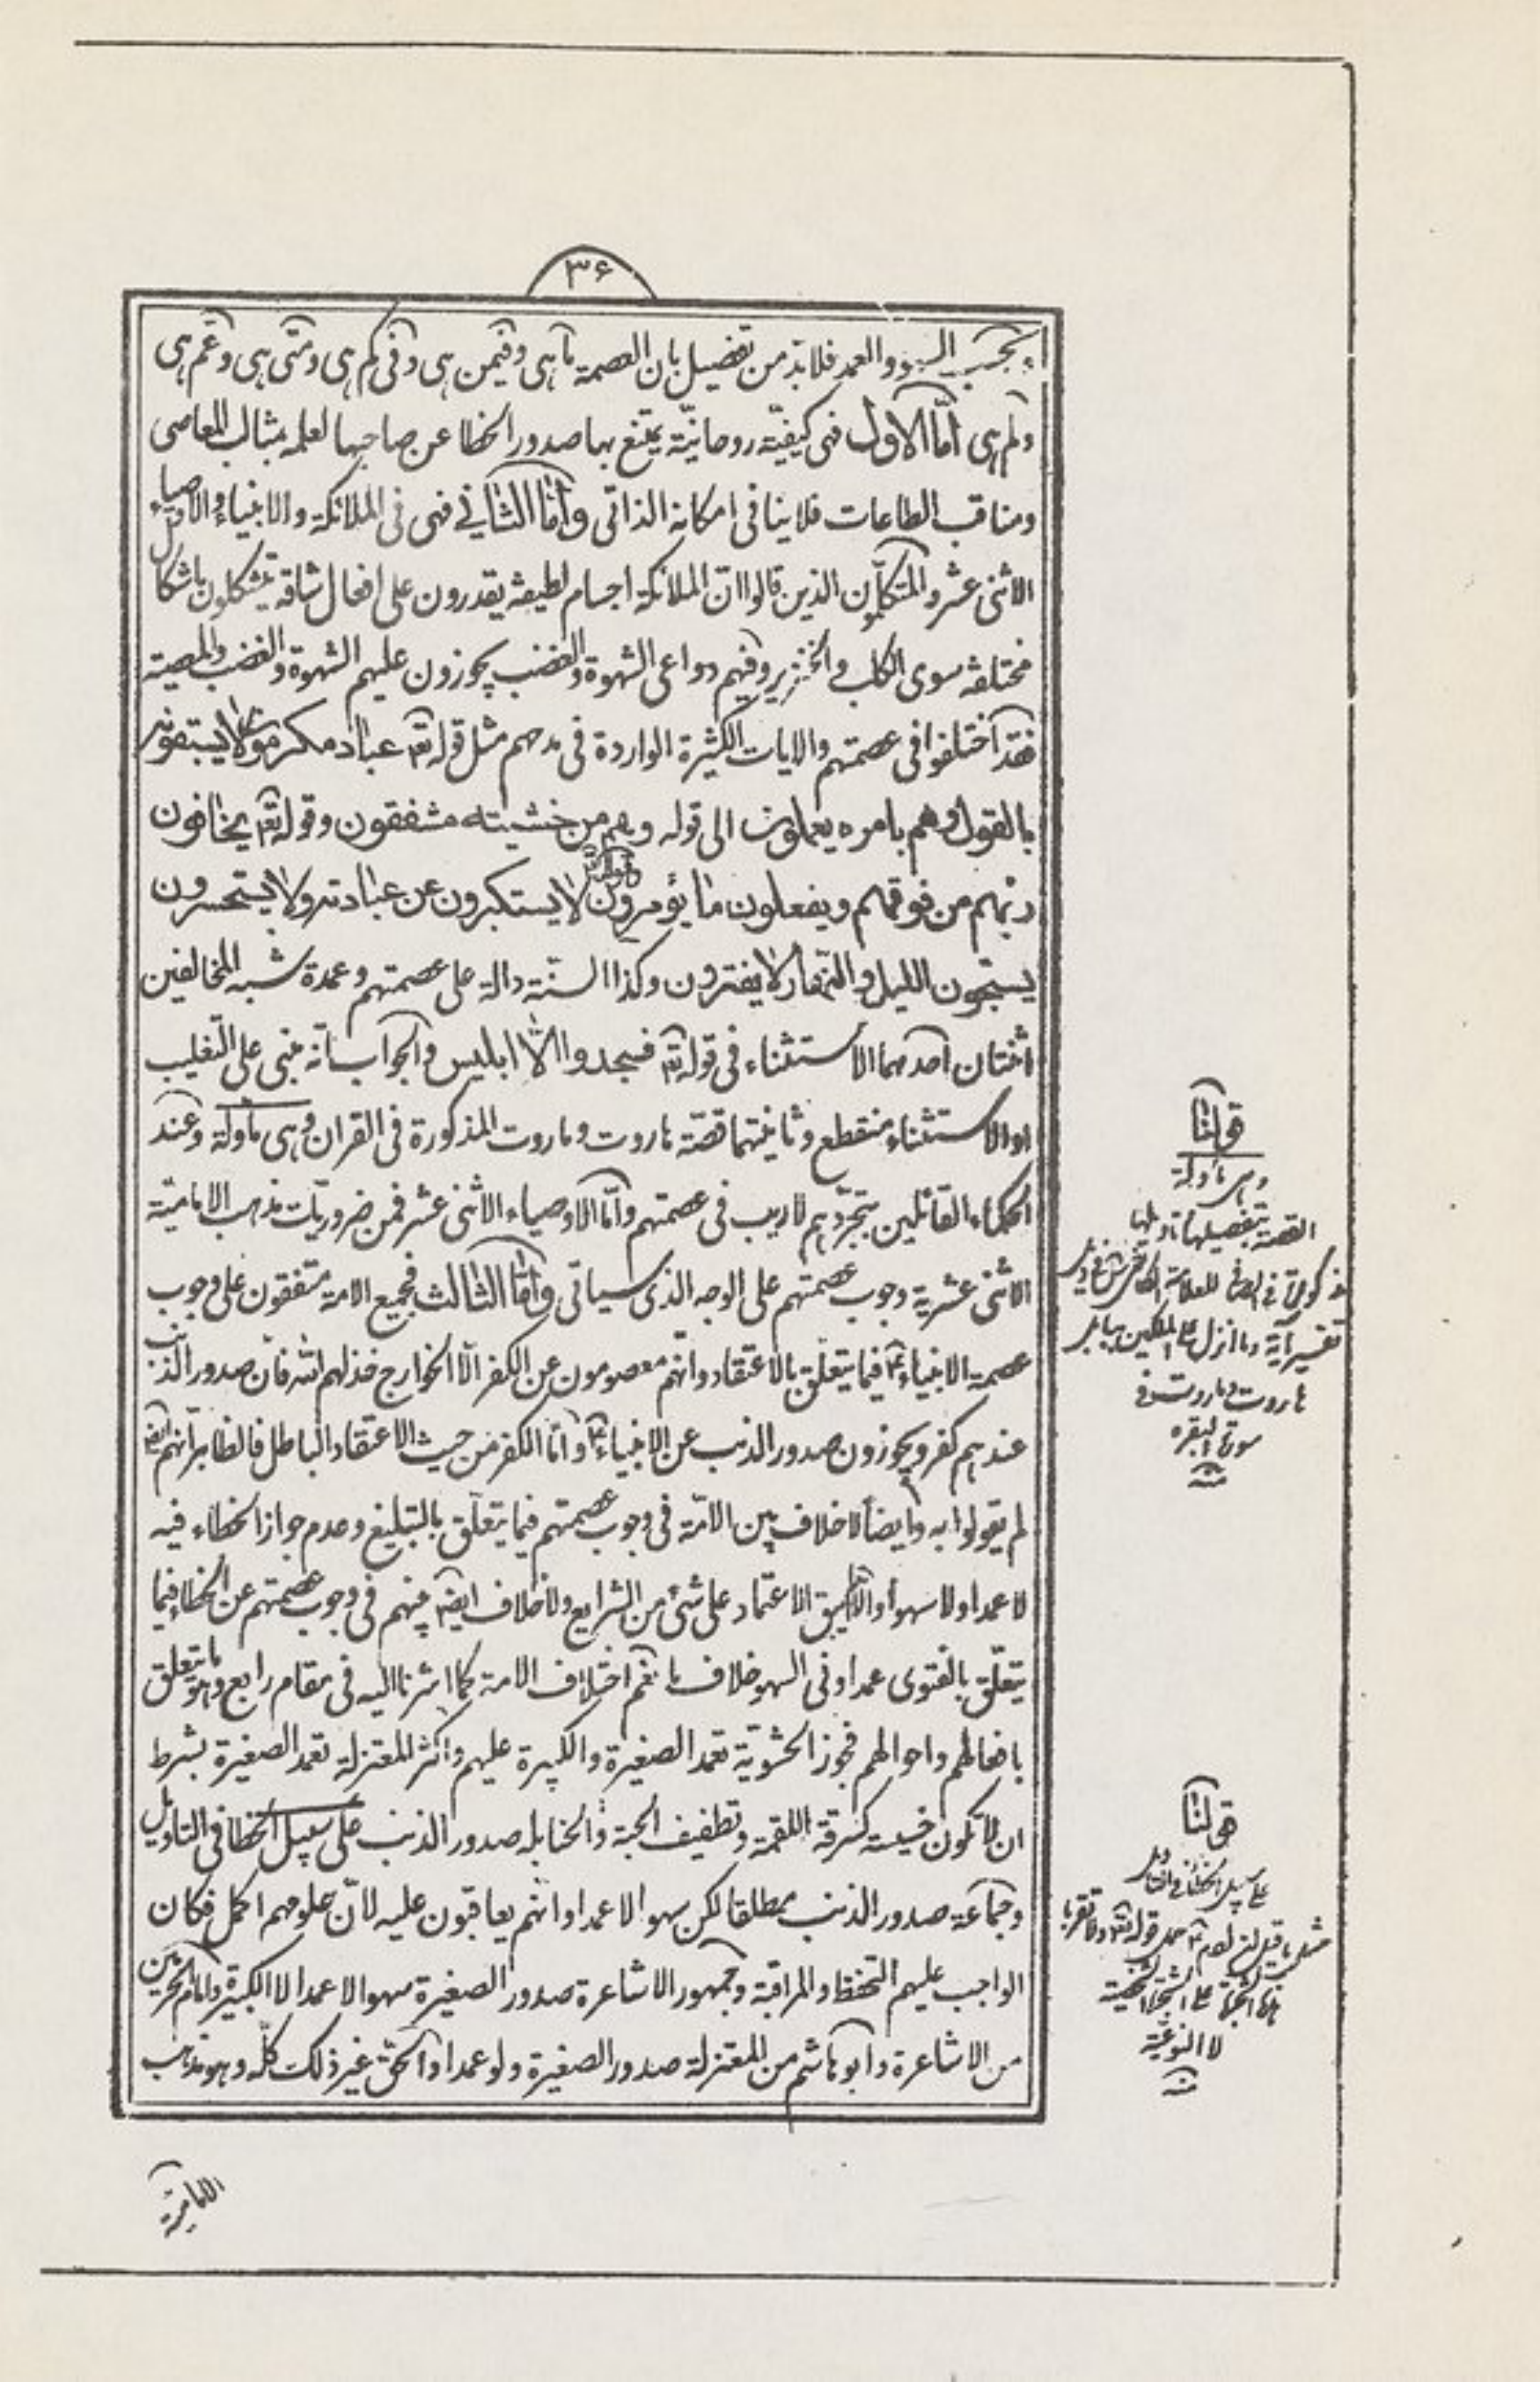 ۳۶
بحسب السهو والعمد فلابد من تفصيل بان العصمة ما هى وفيمن هى وفى كم هى ومتى هى وعم هى
ولم هى امّا الاول فهى كيفيّة روحانيّة يمتنع بها صدور الخطا عن صاحبها لعلمه بمثالب المعاصى
ومناقب الطاعات فلا ينافى امكانه الذاتى وامّا الثانى فهى فى الملائكة والانبياء والاوصياء
الاثنى عشر والمتكلّمون الذين قالوا انّ الملائكة اجسام لطيفة يقدرون على افعال شاقة يتشكلون باشكال
مختلفة سوى الكلب والخنزير وفيهم دواعى الشهوة والغضب يجوزون عليهم الشهوة والغضب والمعصية
فقد اختلفوا فى عصمتهم والايات الكثيرة الواردة فى مدحهم مثل قوله تعم عباد مكرمون لا يسبقونه
بالقول وهم بامره يعملون الى قوله وهم من خشيته مشفقون وقوله تعم يخافون
ربّهم من فوقهم ويفعلون ما يؤمرون وقوله تعم لا يستكبرون عن عبادته ولا يستحسرون
يسبّحون الليل والنّهار لا يفترون وكذا السنّة دالة على عصمتهم وعمدة شبه المخالفين
اثنتان احدهما الاستثناء فى قوله تعم فسجدوا الّا ابليس والجواب انّه مبنى على التّغليب
او الاستثناء منقطع وثانيتهما قصّة هاروت وماروت المذكورة فى القران وهى ماولة وعند
الحكماء القائلين بتجرّدهم لا ريب فى عصمتهم وامّا الاوصياء الاثنى عشر فمن ضروريّات مذهب الاماميّة
الاثنى عشرية وجوب عصمتهم على الوجه الذى سياتى وامّا الثالث فجميع الامة متفقون على وجوب
عصمة الانبياء ع فيما يتعلّق بالاعتقاد وانّهم معصومون عن الكفر الّا الخوارج خذلهم الله فانّ صدور الذنب
عندهم كفر ويجوزون صدور الذنب عن الانبياء ع وامّا الكفر من حيث الاعتقاد الباطل فالظاهر انّهم ايضا
لم يقولوا به وايضاً لا خلاف بين الامّة فى وجوب عصمتهم فيما يتعلّق بالتبليغ وعدم جواز الخطاء فيه
لا عمدا ولا سهواً والّا لم يبق الاعتماد على شئ من الشرايع ولا خلاف ايضا بينهم فى وجوب عصمتهم عن الخطاء فيما
يتعلّق بالفتوى عمدا وفى السهو خلاف ما نعم اختلاف الامة كما اشرنا اليه فى مقام رابع وهو ما يتعلق
بافعالهم واحوالهم فجوز الحشويّة تعمد الصغيرة والكبيرة عليهم واكثر المعتزلة تعمد الصغيرة بشرط
ان لا تكون خسيسة كسرقة اللقمة وتطفيف الحبة والحنابله صدور الذنب على سبيل الخطا فى التاويل
وجماعة صدور الذنب مطلقا لكن سهوا لا عمدا وانّهم يعاقبون عليه لانّ علومهم اكمل فكان
الواجب عليهم التحفظ والمراقبة وجمهور الاشاعرة صدور الصغيرة سهوا لا عمدا لا الكبيرة وامام الحرمين
من الاشاعرة وابو هاشم من المعتزلة صدور الصغيرة ولو عمدا والحق غير ذلك كلّه وهو مذهب
الاماميّة
قولنا
وهى ماولة
القصة بتفصيلها وتاويلها
مذكورة فى الصافى للعلامة الكاشى فى ذيل
تفسير آية وما انزل على الملكين ببابل
هاروت وماروت فى
سورة البقره
منه
قولنا
على سبيل الخطا فى التاويل
مثل ما قيل ان ادم ع حمل قوله تعم ولا تقربا
هذه الشجرة على الشجرة الشخصية
لا النوعيّة
منه